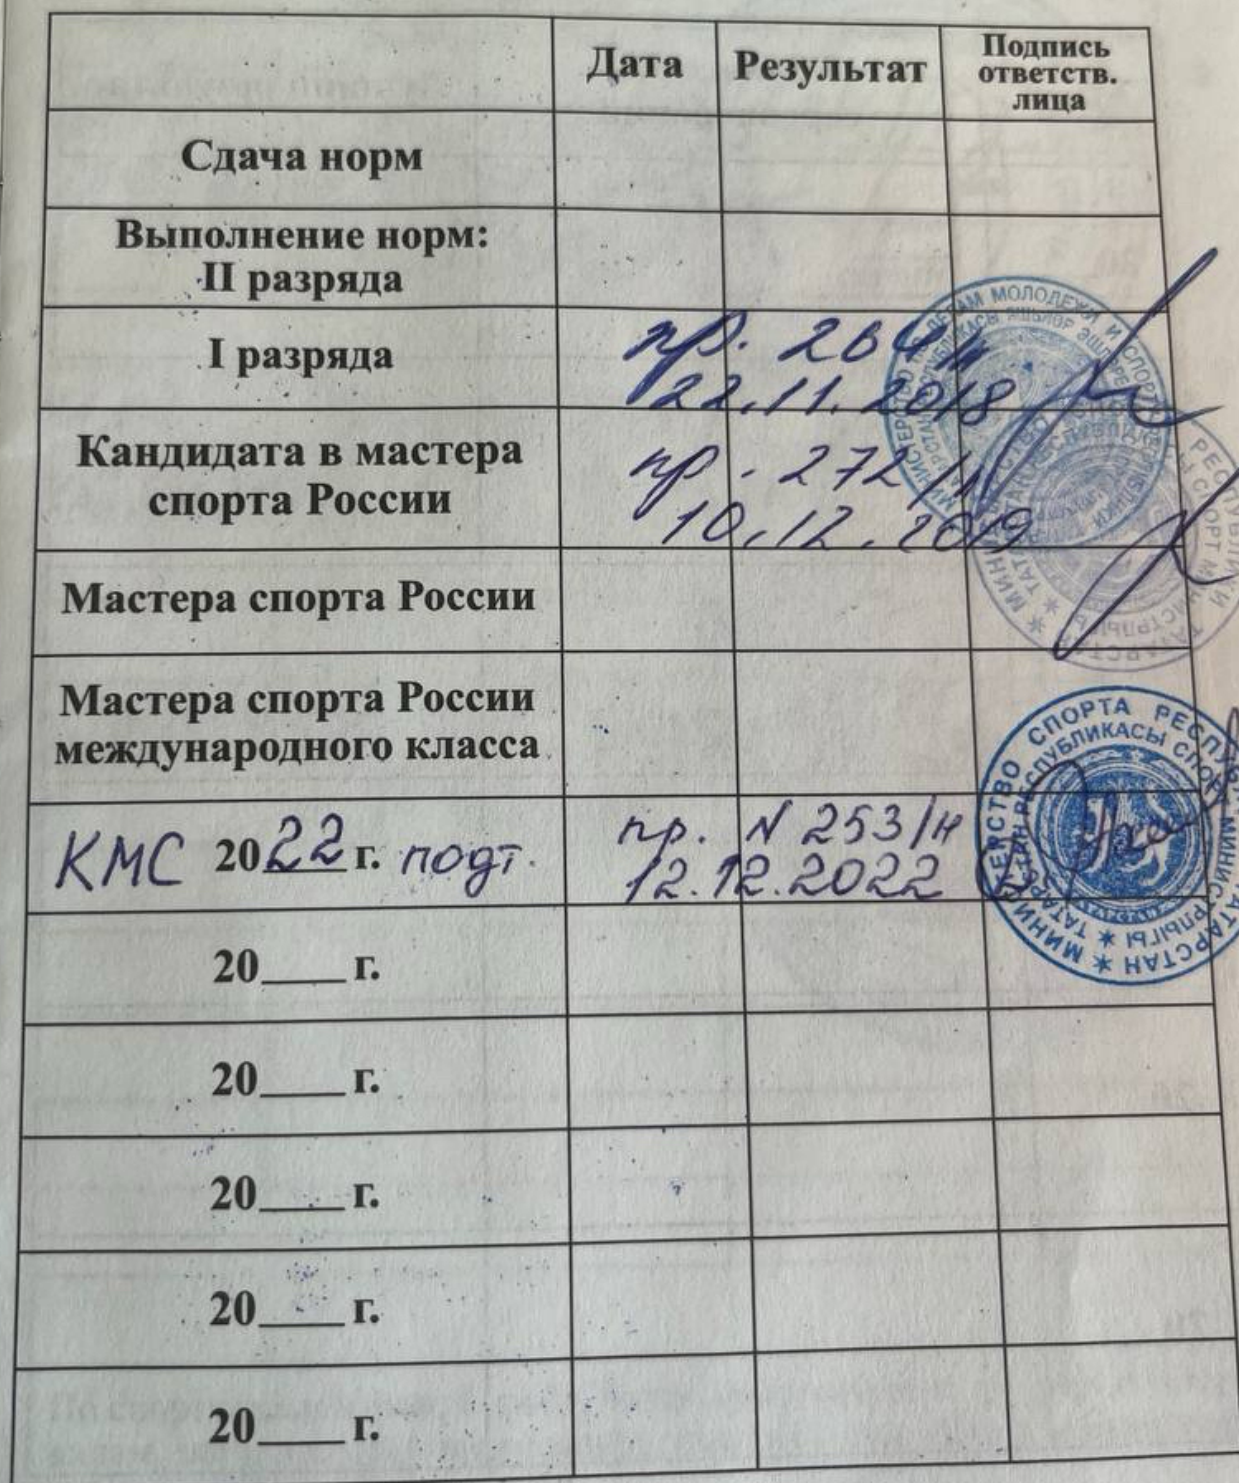 Дата Результат Подпись
ответств.
лица
Сдача норм
Выполнение норм:
II разряда
I разряда пр. 264/н
22.11.2018
Кандидата в мастера пр. 272/н
спорта России 10.12.2019
Мастера спорта России
Мастера спорта России
международного класса
КМС 2022 г. подт. пр. N 253/н
12.12.2022
20____г.
20____г.
20____г.
20____г.
20____г.
МИНИСТЕРСТВО ПО ДЕЛАМ МОЛОДЕЖИ И СПОРТУ
МИНИСТЕРСТВО СПОРТА РЕСПУБЛИКИ ТАТАРСТАН
ТАТАРСТАН РЕСПУБЛИКАСЫ СПОРТ МИНИСТРЛЫГЫ